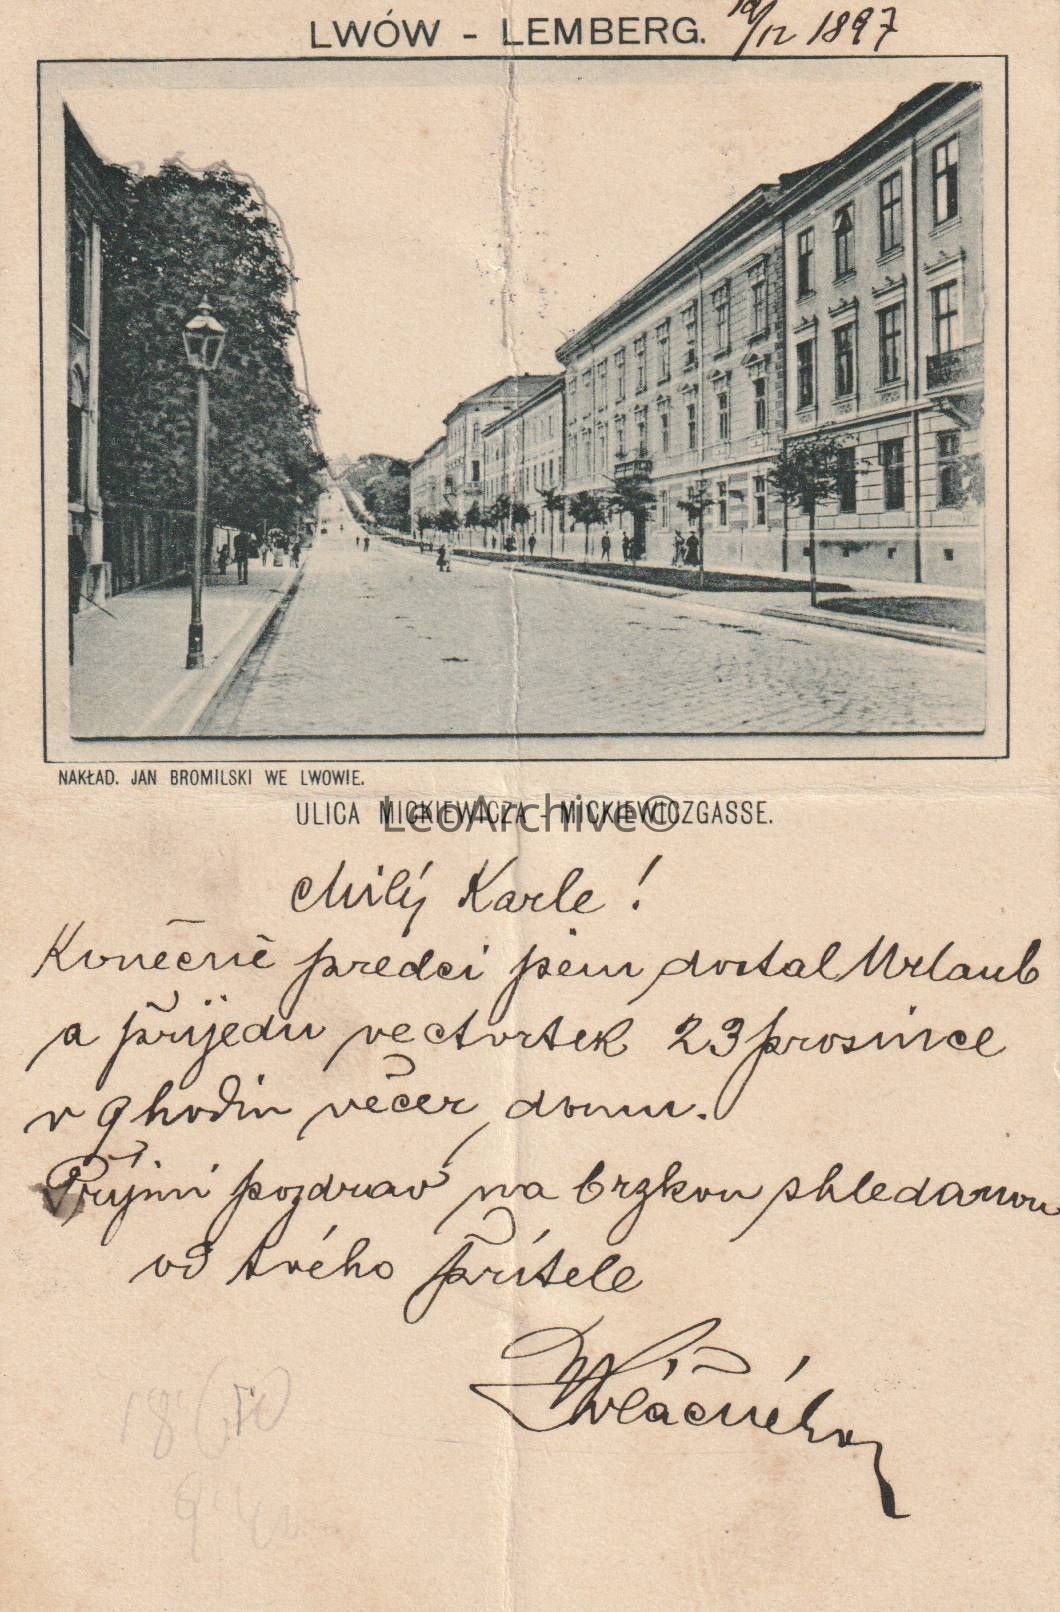 LWÓW - LEMBERG. 19/12 1897
NAKŁAD. JAN BROMILSKI WE LWOWIE.
ULICA MICKIEWICZA - MICKIEWICZGASSE.
LeoArchive©
Milý Karle!
Konečně předci jsem dostal Urlaub
a přijedu ve čtvrtek 23 prosince
v 9 hodin večer domu.
Přijmi pozdrav na brzkou shledanou
od tvého přítele